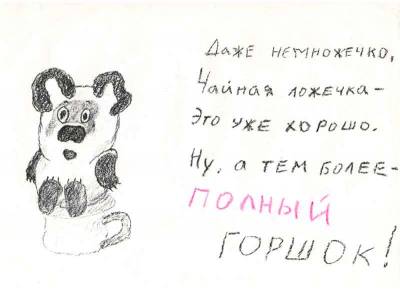 Даже немножечко,
Чайная ложечка -
Это уже хорошо.
Ну, а тем более -
ПОЛНЫЙ
ГОРШОК!